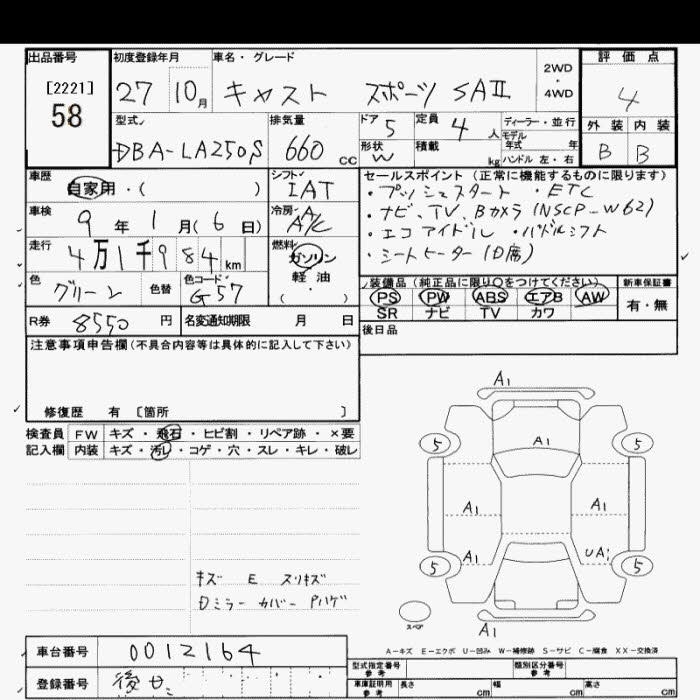 出品番号 初度登録年月 車名・グレード 評価点
[2221] 27 10月 キャスト スポーツ SAII 2WD・4WD 4
58
型式 排気量 ドア 5 定員 4人 ディーラー・並行 外装 内装
DBA-LA250S 660cc 形状 W 積載 kg モデル年式 年 B B
ハンドル 左・右
車歴 シフト セールスポイント(正常に機能するものに限ります)
自家用・( ) IAT ・プッシュスタート ・ETC
車検 冷房 ・ナビ、TV、Bカメラ(NSCP-W62)
9年 1月(6日) A/C ・エコアイドル ・パドルシフト
走行 燃料 ・シートヒーター(D席)
4万1千984km ガソリン
色 グリーン 色替 色コード G57 軽油 装備品(純正品に限り○をつけてください) 新車保証書
( ・ ) PS PW ABS エアB AW 有・無
R券 8550円 名変通知期限 月 日 SR ナビ TV カワ
後日品
注意事項申告欄(不具合内容等は具体的に記入して下さい)
修復歴 有 〔箇所 〕
検査員 FW キズ・飛石・ヒビ割・リペア跡・×要
記入欄 内装 キズ・汚レ・コゲ・穴・スレ・キレ・破レ
A1
5 A1 5
A1 A1
A1 UA1
5 5
キズ E スリキズ
Dミラーカバー Pハゲ
スペア
A1
A-キズ E-エクボ U-凹み W-補修跡 S-サビ C-腐食 XX-交換済
車台番号 0012164
型式指定番号 参考 類別区分番号 参考
登録番号 後日
車庫証明用 参考 長さ cm 幅 cm 高さ cm